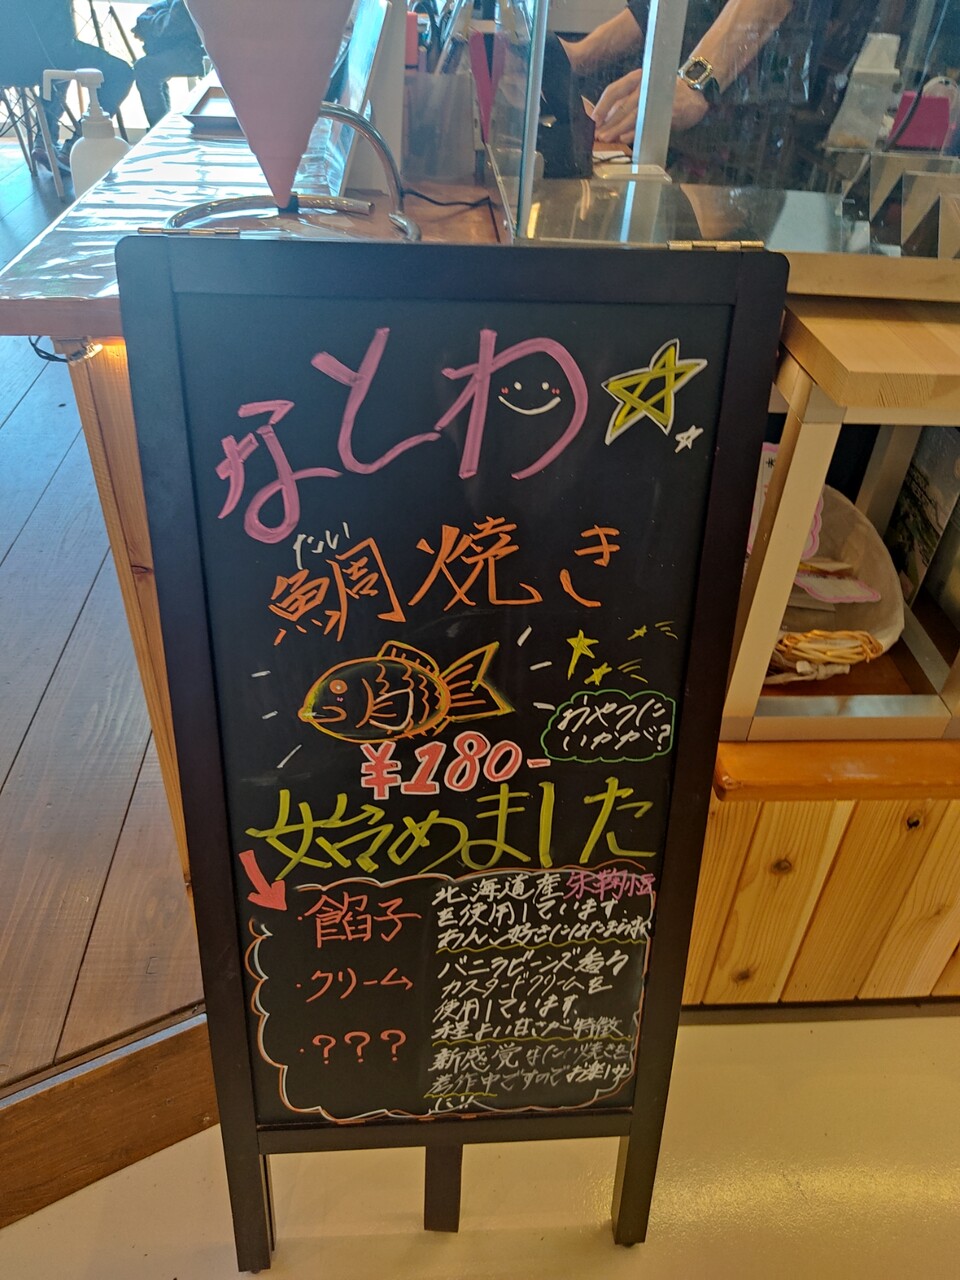 なとわ
たい
鯛焼き
おやつに
いかが?
¥180-
始めました
・餡子
北海道産朱鞠小豆
を使用しています。
あんこ好きにはたまら
・クリーム
バニラビーンズ香る
カスタードクリームを
使用しています。
程よい甘さが特徴
・???
新感覚なたい焼きを
考作中ですのでお楽しみ
に!!